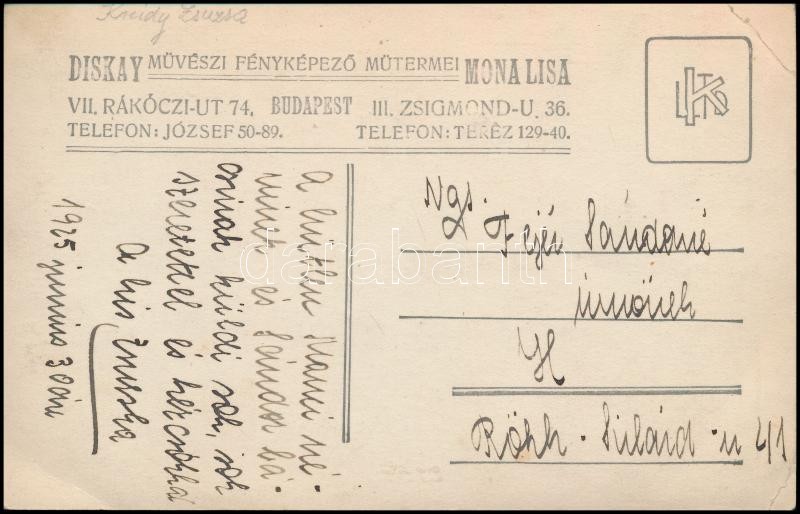 Krúdy Zsuzsa
DISKAY MŰVÉSZI FÉNYKÉPEZŐ MŰTERMEI MONA LISA
VII. RÁKÓCZI-UT 74. BUDAPEST III. ZSIGMOND-U. 36.
TELEFON: JÓZSEF 50-89. TELEFON: TERÉZ 129-40.
Ngs. Fejér Sándorné
Úrnőnek
Rökk-Szilárd-u 4/1
A Mami né-
ninek és Sándor bá-
csinak küldi sok, sok
szeretettel és kézcsókkal
A kis Zsuzska
1925 június 30án
darabanth